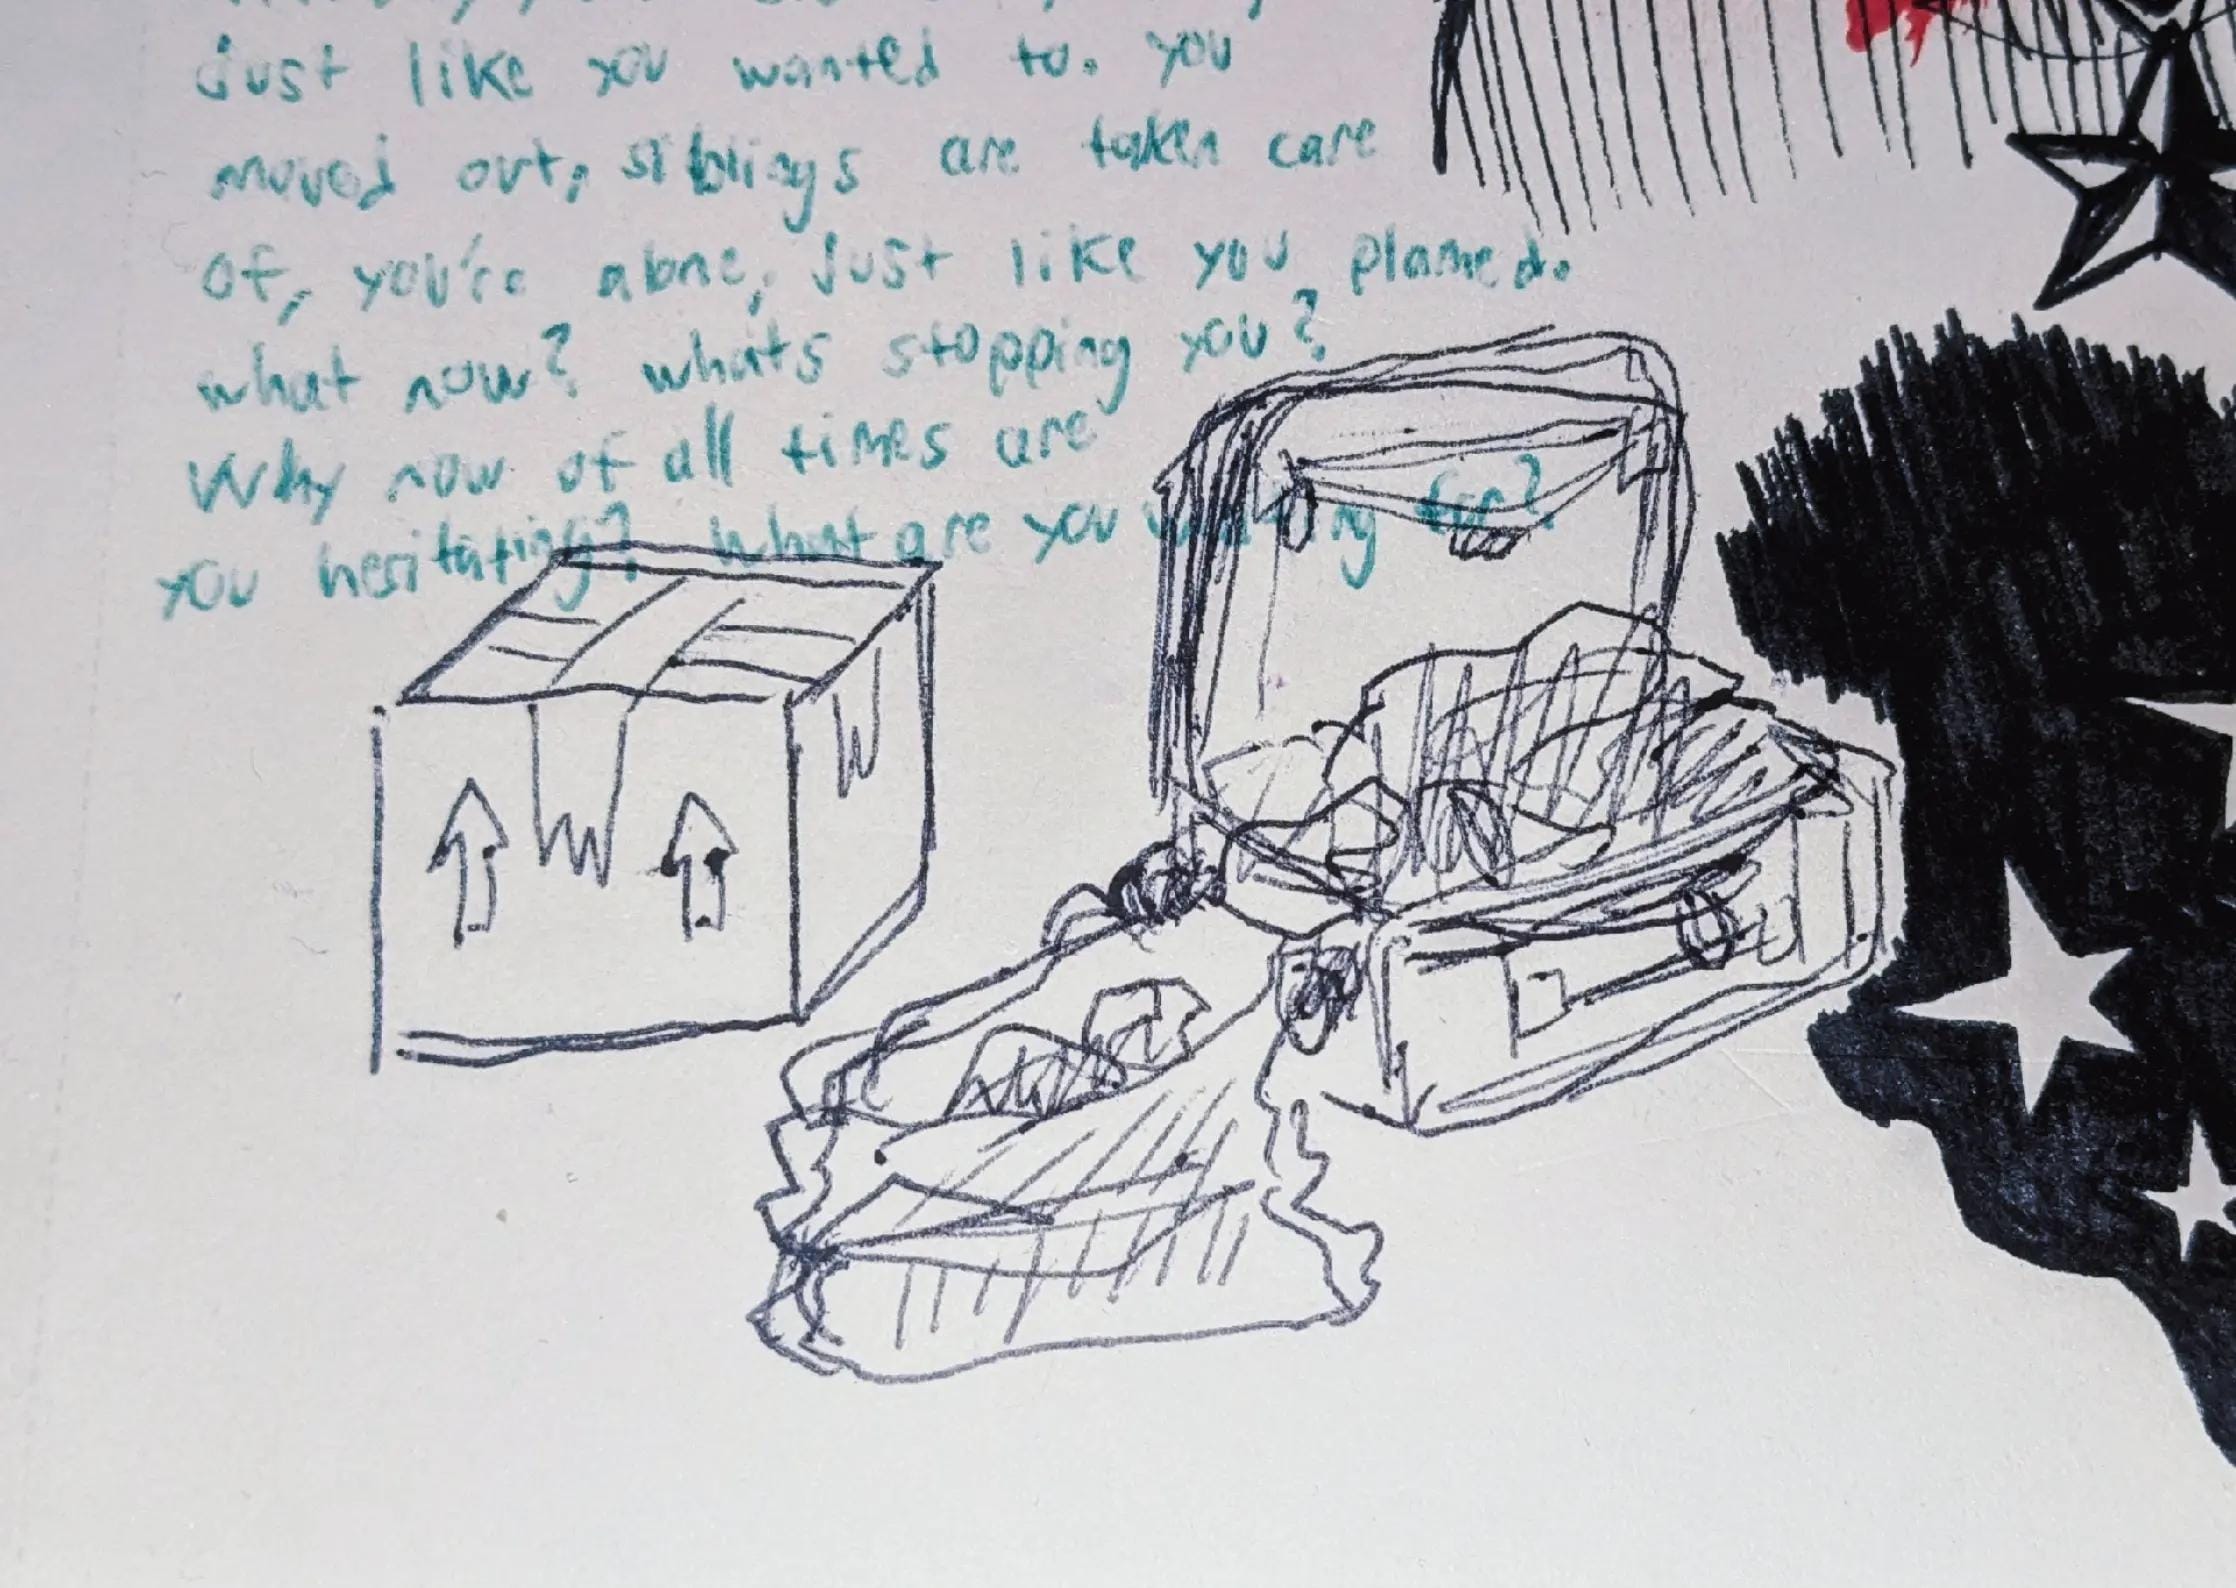 just like you wanted to. you
moved out, siblings are taken care
of, you're alone, just like you planned.
what now? whats stopping you?
Why now of all times are
you hesitating? what are you waiting for?